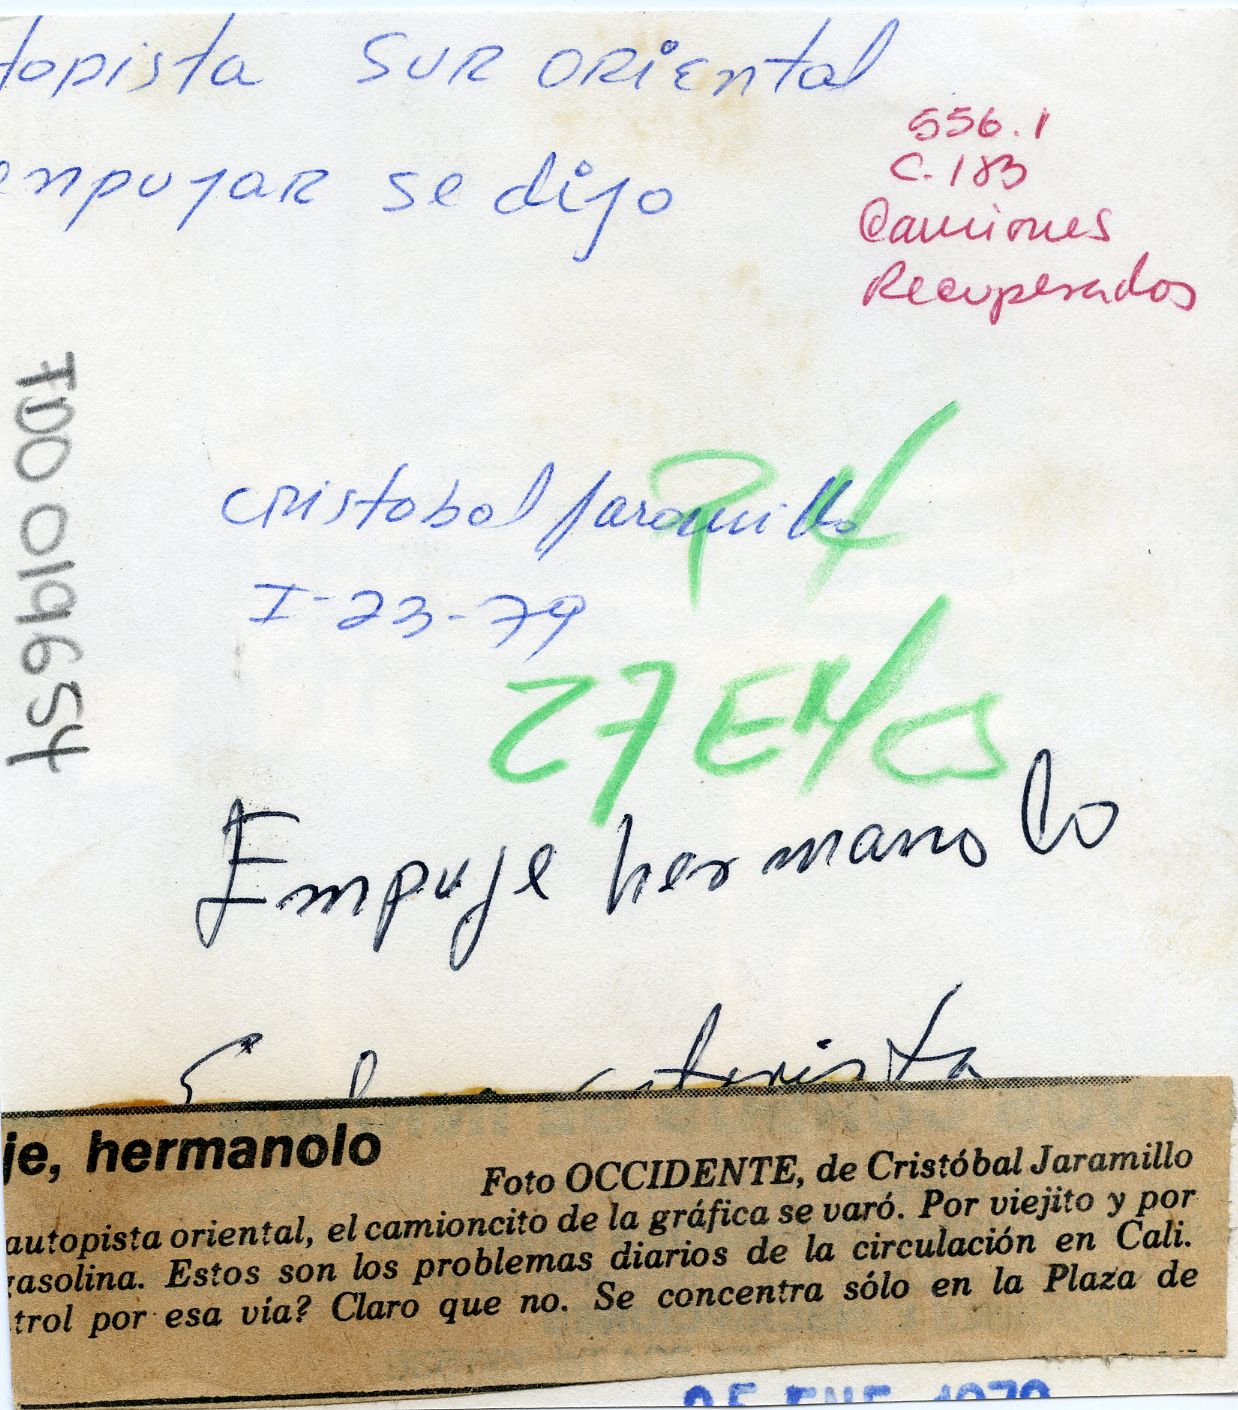 topista SUR ORiental
empujar se dijo
556.1
C.183
Camiones
Recuperados
TDO 019654
cristobal Jaramillo
I-23-79
27 EN/
Empuje hermanolo
je, hermanolo
Foto OCCIDENTE, de Cristóbal Jaramillo
autopista oriental, el camioncito de la gráfica se varó. Por viejito y por
gasolina. Estos son los problemas diarios de la circulación en Cali.
trol por esa vía? Claro que no. Se concentra sólo en la Plaza de
25 ENE. 1979